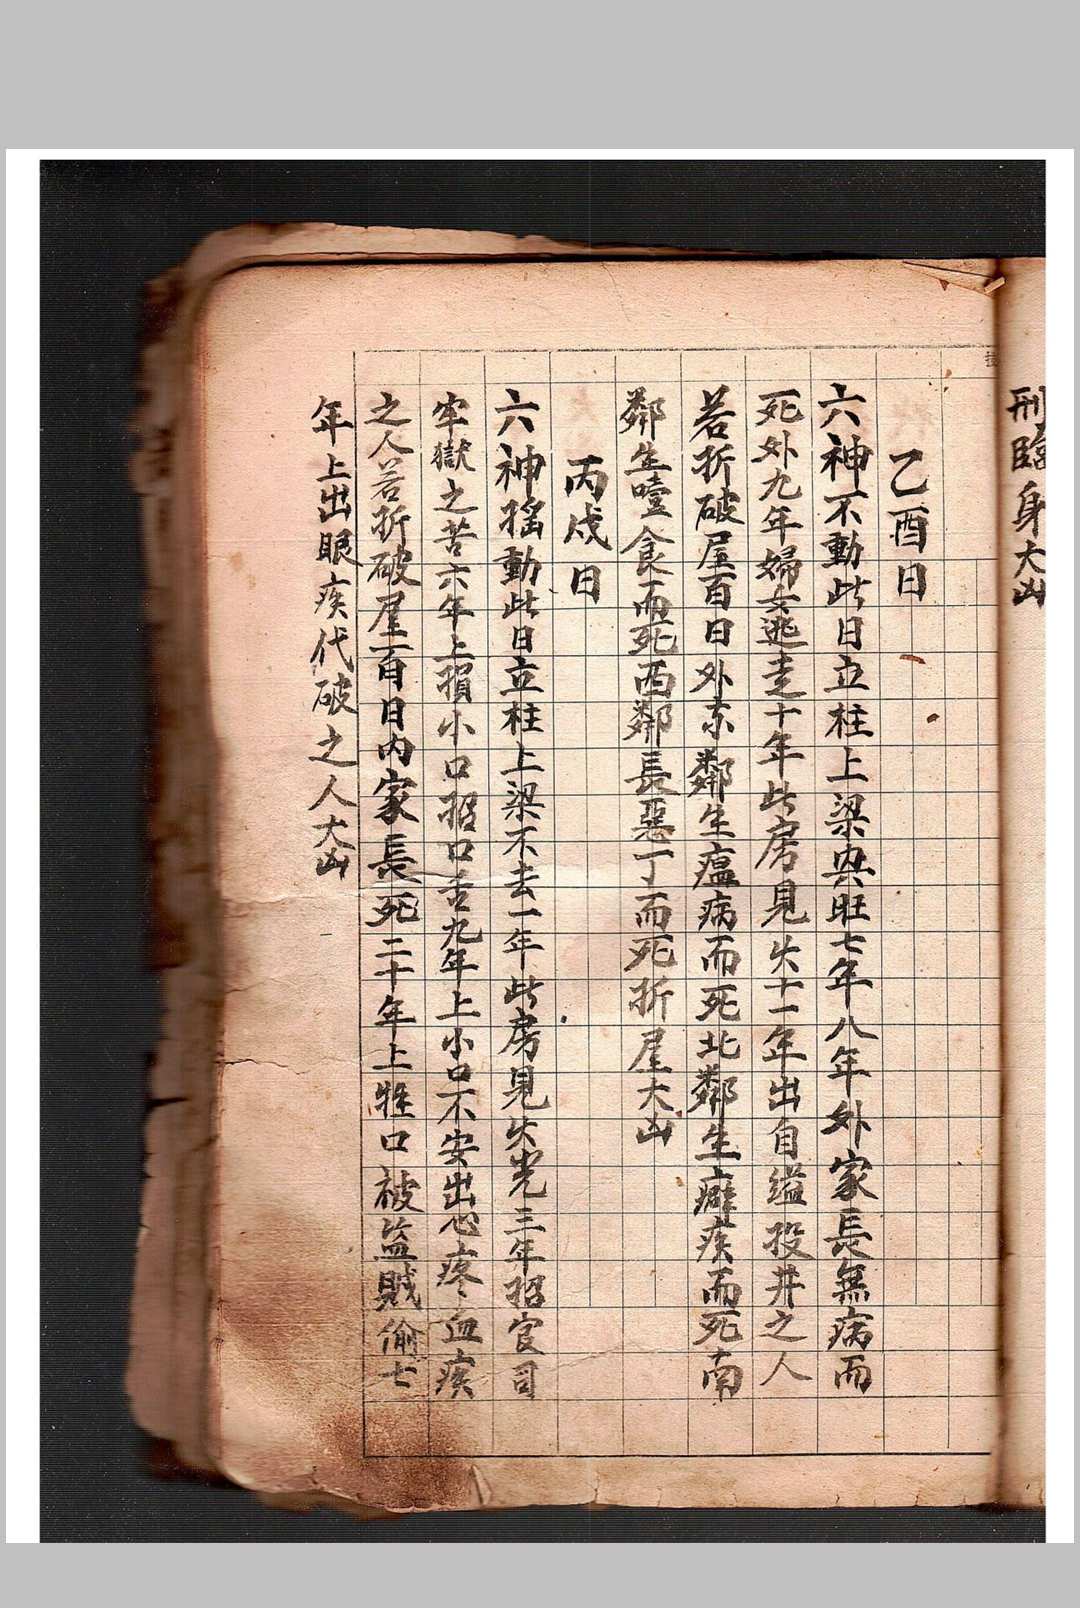 刑臨身大凶
乙酉日
六神不動此日立柱上梁興旺七年八年外家長無病而
死外九年婦女逃走十年此房見失十一年出自縊投井之人
若折破屋百日外東鄰生瘟病而死北鄰生癖疾而死南
鄰生噎食而死西鄰長惡丁而死折屋大凶
丙戌日
六神搖動此日立柱上梁不去一年此房見失光三年招官司
牢獄之苦六年上損小口招口舌九年上小口不安出心疼血疾
之人若折破屋百日內家長死二十年上牲口被盜賊偷七
年上出眼疾代破之人大凶